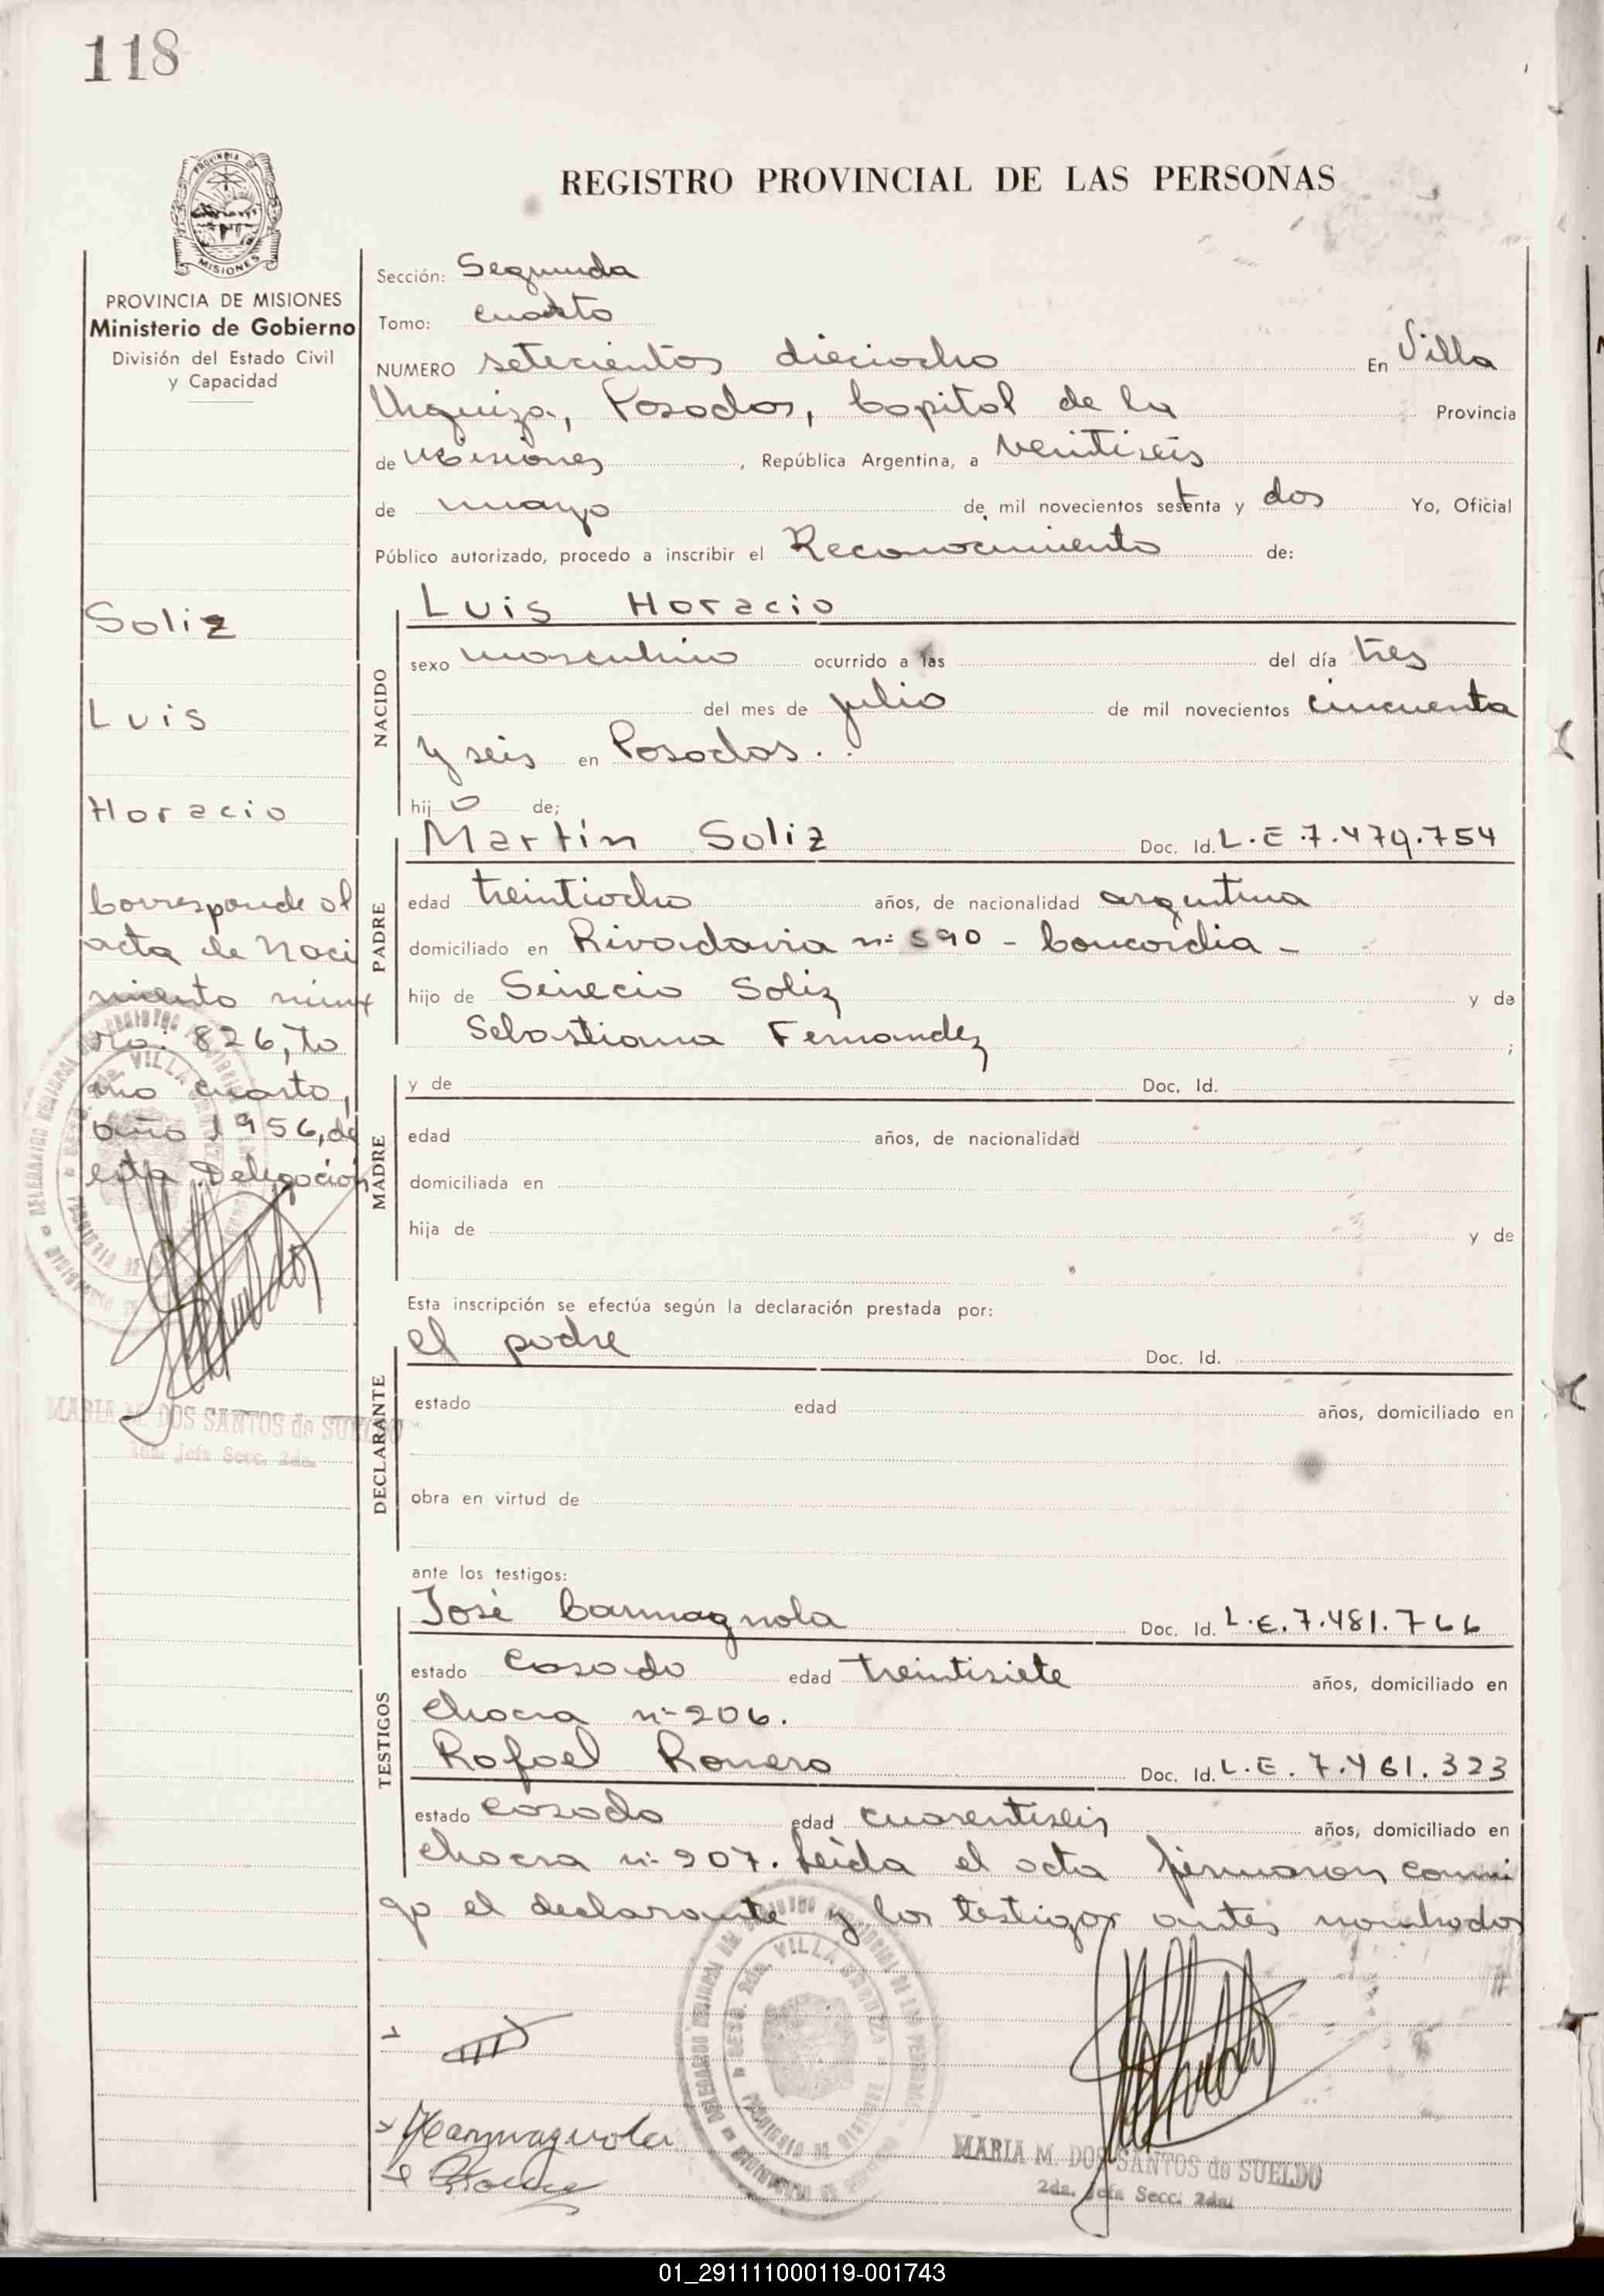 118
REGISTRO PROVINCIAL DE LAS PERSONAS
PROVINCIA DE MISIONES
Ministerio de Gobierno
División del Estado Civil
y Capacidad
Sección: Segunda
Tomo: cuarto
NUMERO setecientos dieciocho En Villa
Urquiza, Posadas, Capital de la Provincia
de Misiones, República Argentina, a veintiseis
de mayo de mil novecientos setenta y dos Yo, Oficial
Público autorizado, procedo a inscribir el Reconocimiento de:
Soliz
Luis
Horacio
Corresponde al
acta de Naci
miento núme
ro: 826, to
mo cuarto,
año 1956, de
esta Delegación
MARIA M. DOS SANTOS de SUELDO
2da. Jefa Secc. 2da.
NACIDO
Luis Horacio
sexo masculino ocurrido a las del día tres
del mes de julio de mil novecientos cincuenta
y seis en Posadas.
hijo de;
PADRE
Martín Soliz Doc. Id. L.E.7.479.754
edad treintiocho años, de nacionalidad argentina
domiciliado en Rivadavia nº 590 - Concordia -
hijo de Senecio Soliz y de
Sebastiana Fernandez ;
MADRE
y de Doc. Id.
edad años, de nacionalidad
domiciliada en
hija de y de
Esta inscripción se efectúa según la declaración prestada por:
DECLARANTE
el padre Doc. Id.
estado edad años, domiciliado en
obra en virtud de
ante los testigos:
TESTIGOS
José Carmagnola Doc. Id. L.E.7.481.766
estado casado edad treintisiete años, domiciliado en
chacra nº 206.
Rafael Romero Doc. Id. L.E.7.461.323
estado casado edad cuarentiseis años, domiciliado en
chacra nº 207. Leída el acta firmaron conmi
go el declarante y los testigos antes nombrados
JCarmagnola
MARIA M. DOS SANTOS de SUELDO
2da. Jefa Secc. 2da.
01_291111000119-001743